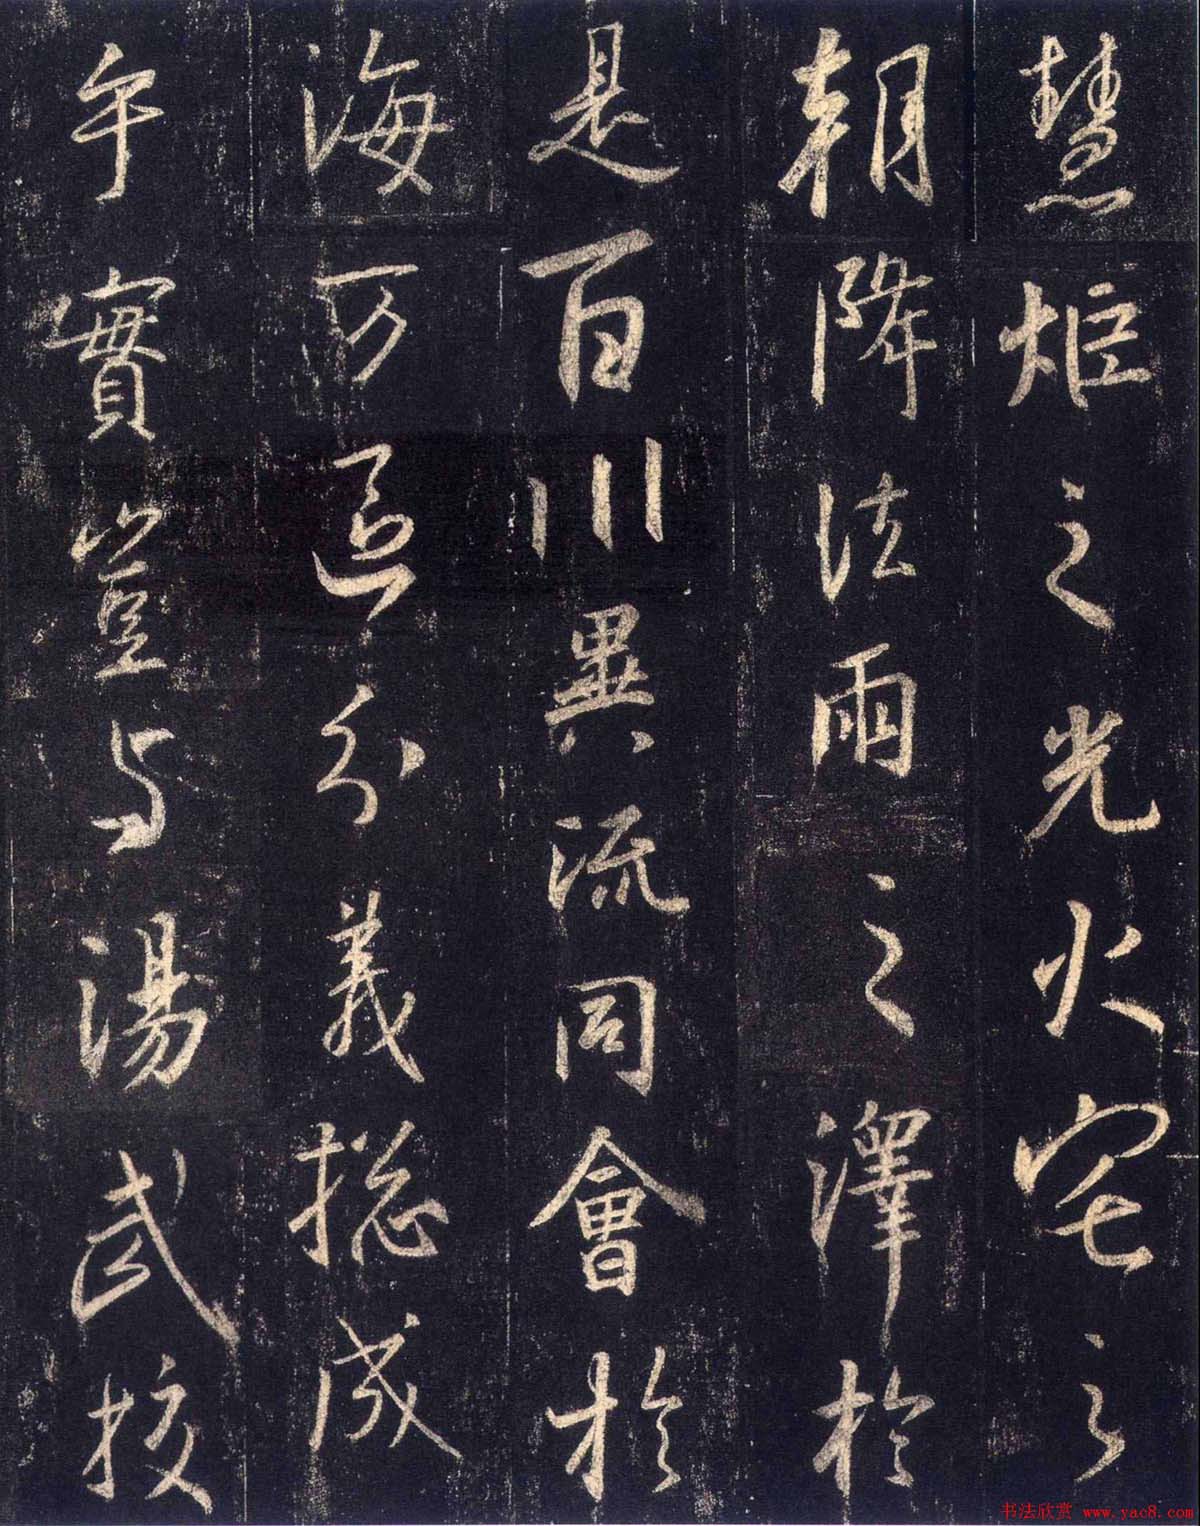 慧炬之光火宅之
朝降法雨之澤於
是百川異流同會於
海万區分義揔成
乎實豈与湯武挍
书法欣赏 www.yac8.com